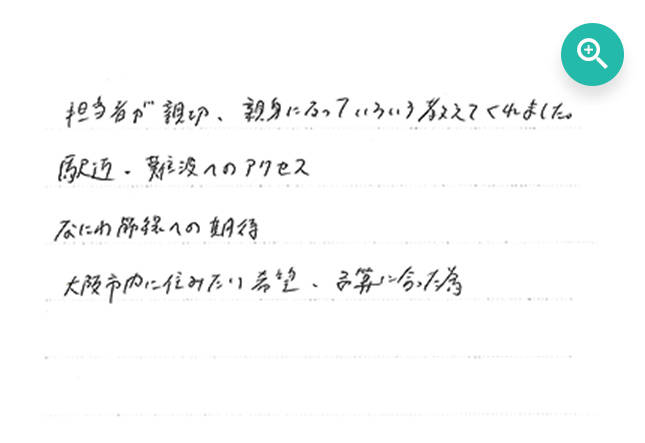 担当者が親切、親身になっていろいろ教えてくれました。
駅近・難波へのアクセス
なにわ筋線への期待
大阪市内に住みたい希望、予算に合った為